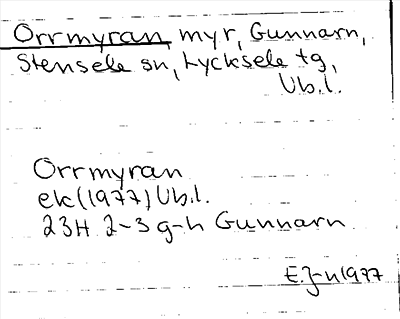 Orrmyran, myr, Gunnarn,
Stensele sn, Lycksele tg,
Vb.l.
Orrmyran
ek (1977) Vb.l.
23H 2-3 g-h Gunnarn
E.J-n 1977